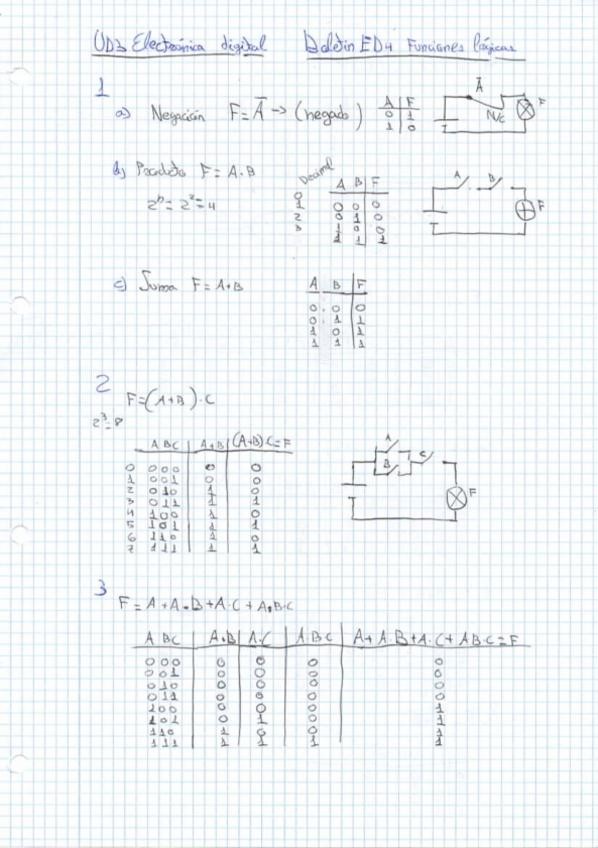 UD3 Electrónica digital Boletin ED4 Funciones lógicas
1
a) Negación F = Ā → (negado)
A F
0 1
1 0
Ā
N/C
F
b) Producto F = A·B
2ⁿ = 2² = 4
Decimal A B F
0 0 0 0
1 0 1 0
2 1 0 0
3 1 1 1
A B
F
c) Suma F = A+B
A B F
0 0 0
0 1 1
1 0 1
1 1 1
2
F = (A+B)·C
2³ = 8
A B C A+B (A+B)·C = F
0 000 0 0
1 001 0 0
2 010 1 0
3 011 1 1
4 100 1 0
5 101 1 1
6 110 1 0
7 111 1 1
A
B C
F
3
F = A + A·B + A·C + A·B·C
A B C A·B A·C A·B·C A + A·B + A·C + A·B·C = F
000 0 0 0 0
001 0 0 0 0
010 0 0 0 0
011 0 0 0 0
100 0 0 0 1
101 0 1 0 1
110 1 0 0 1
111 1 1 1 1